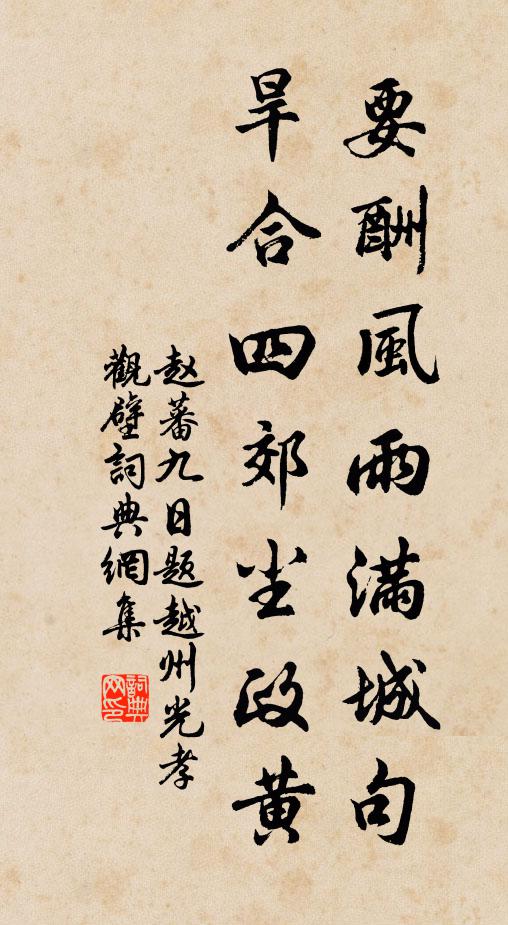 要酬風雨滿城句
旱合四郊尘政黄
赵蕃九日题越州光孝
觀壁詞典網集
詞典网印